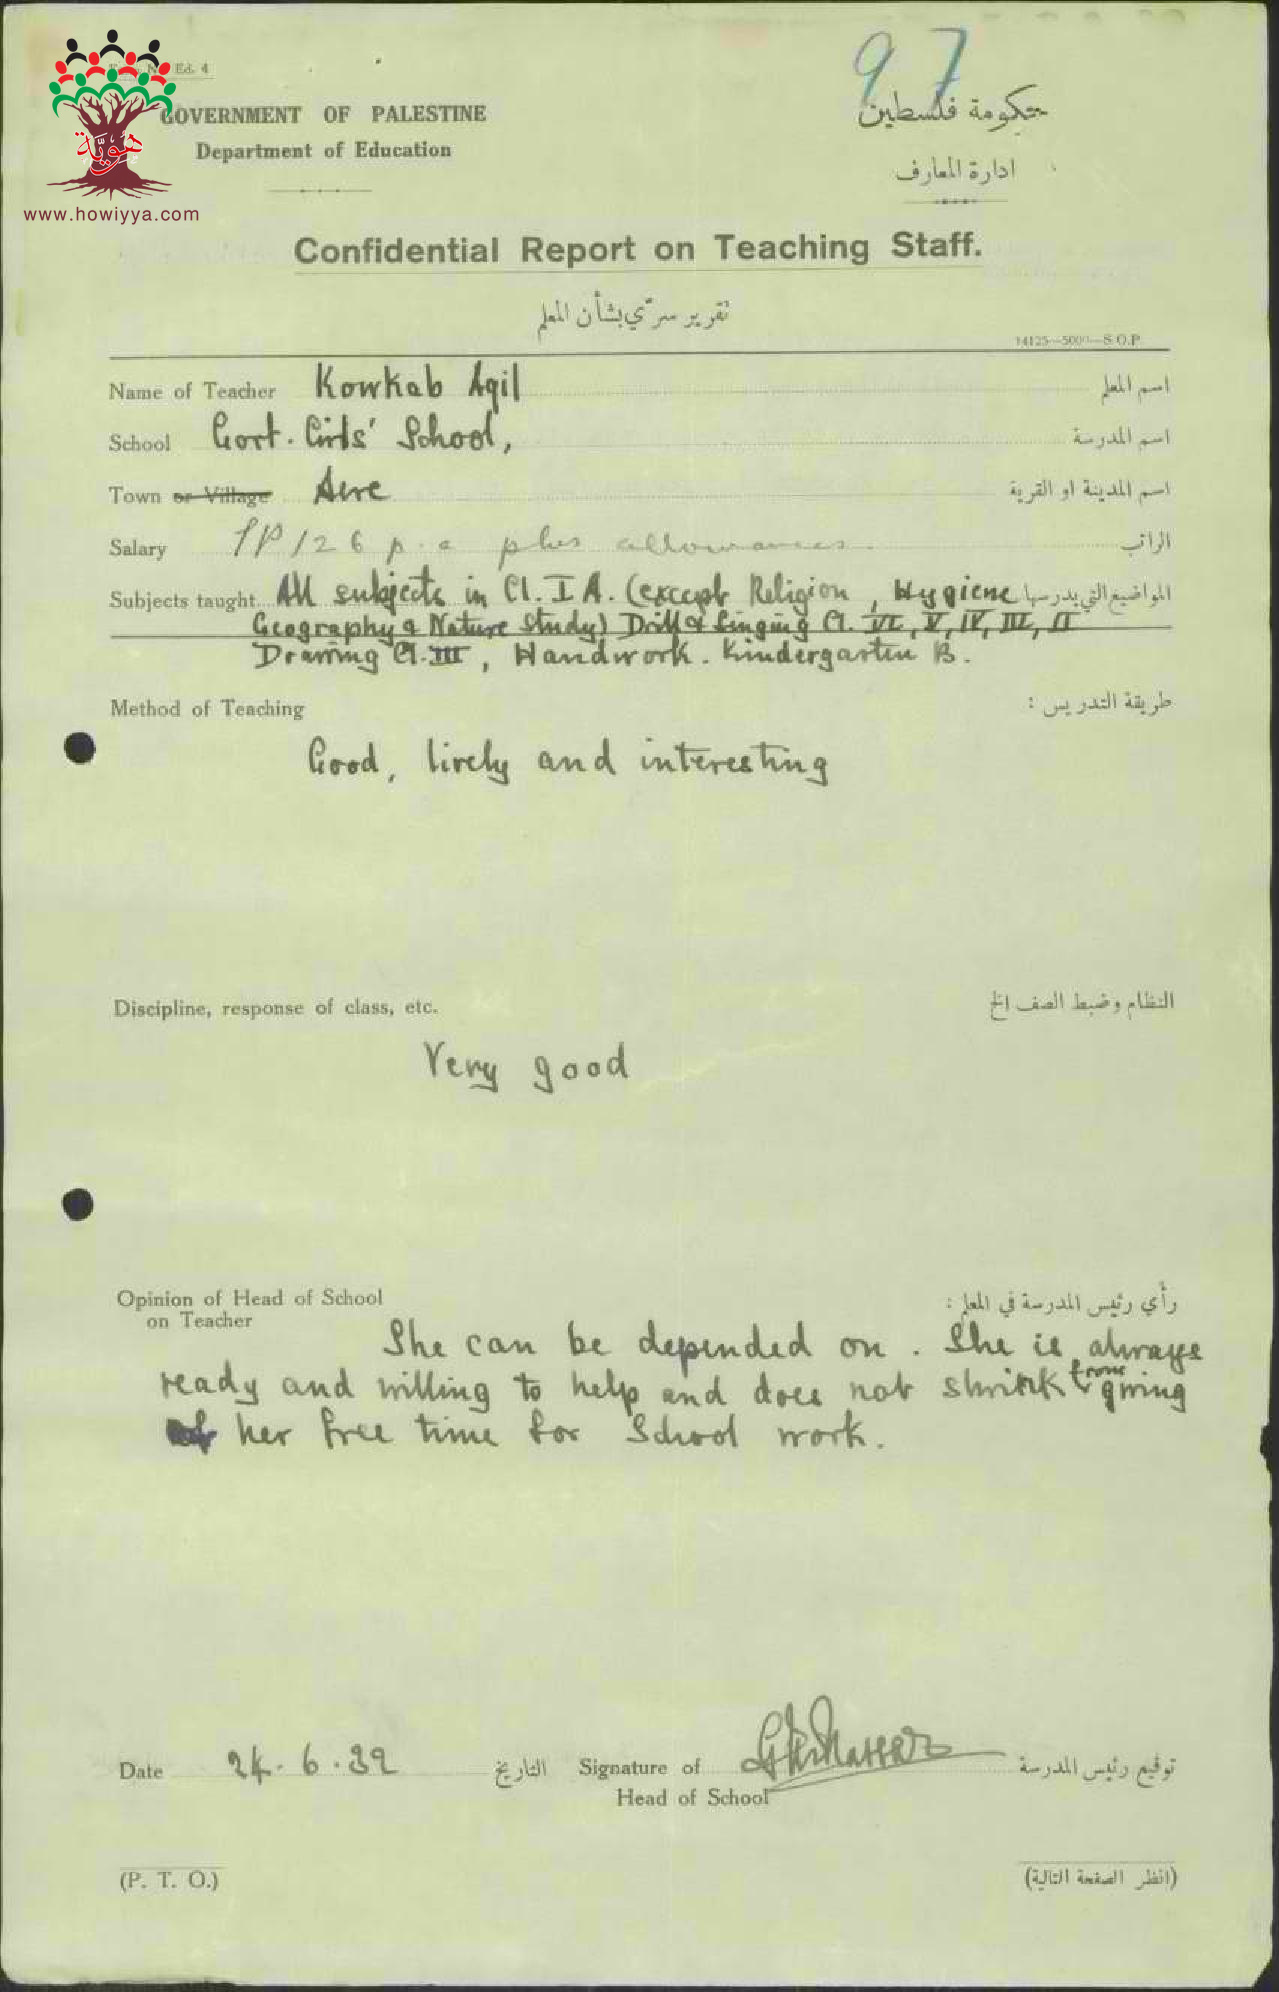 97
Ed. 4
GOVERNMENT OF PALESTINE
حكومة فلسطين
Department of Education
ادارة المعارف
هويّة
www.howiyya.com
Confidential Report on Teaching Staff.
تقرير سرّي بشأن المعلم
14125—5000—S.O.P.
Name of Teacher Kowkab Aqil اسم المعلم
School Govt. Girls' School, اسم المدرسة
Town or Village Acre اسم المدينة او القرية
Salary £P126 p.a plus allowances. الراتب
Subjects taught All subjects in Cl. I A. (except Religion, Hygiene المواضيع التي يدرسها
Geography & Nature Study) Drill & Singing Cl. VI, V, IV, III, II
Drawing Cl. III, Handwork. Kindergarten B.
Method of Teaching طريقة التدريس :
Good, lively and interesting
Discipline, response of class, etc. النظام وضبط الصف الخ
Very good
Opinion of Head of School رأي رئيس المدرسة في المعلم :
on Teacher
She can be depended on. She is always
ready and willing to help and does not shrink from giving
her free time for School work.
Date 24.6.32 التاريخ Signature of توقيع رئيس المدرسة
Head of School
(P. T. O.) (انظر الصفحة التالية)